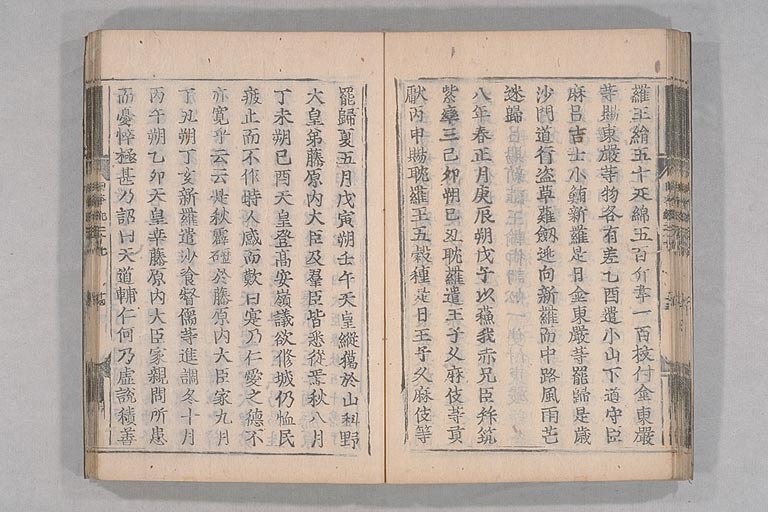 羅王絹五十疋綿五百斤韋一百枚付金東嚴
等賜東嚴等物各有差乙酉遣小山下道守臣
麻呂吉士小鮪新羅是日金東嚴等罷歸是歳
沙門道行盗草薙劒逃向新羅而中路風雨芒
迷歸
八年春正月庚辰朔戊子以蘓我赤兄臣拜筑
紫率三己卯朔己丑耽羅遣王子久麻伎等貢
獻丙申賜耽羅王五穀種是日王子久麻伎等
罷歸夏五月戊寅朔壬午天皇縱獦於山科野
大皇弟藤原内大臣及羣臣皆悉從焉秋八月
丁未朔己酉天皇登高安嶺議欲修城仍恤民
疲止而不作時人感而歎曰寔乃仁愛之德不
亦寛乎云云是秋霹礰於藤原内大臣家九月
丁丑朔丁亥新羅遣沙飡督儒等進調冬十月
丙午朔乙卯天皇幸藤原内大臣家親問所患
而憂悴極甚乃詔曰天道輔仁何乃虚說積善